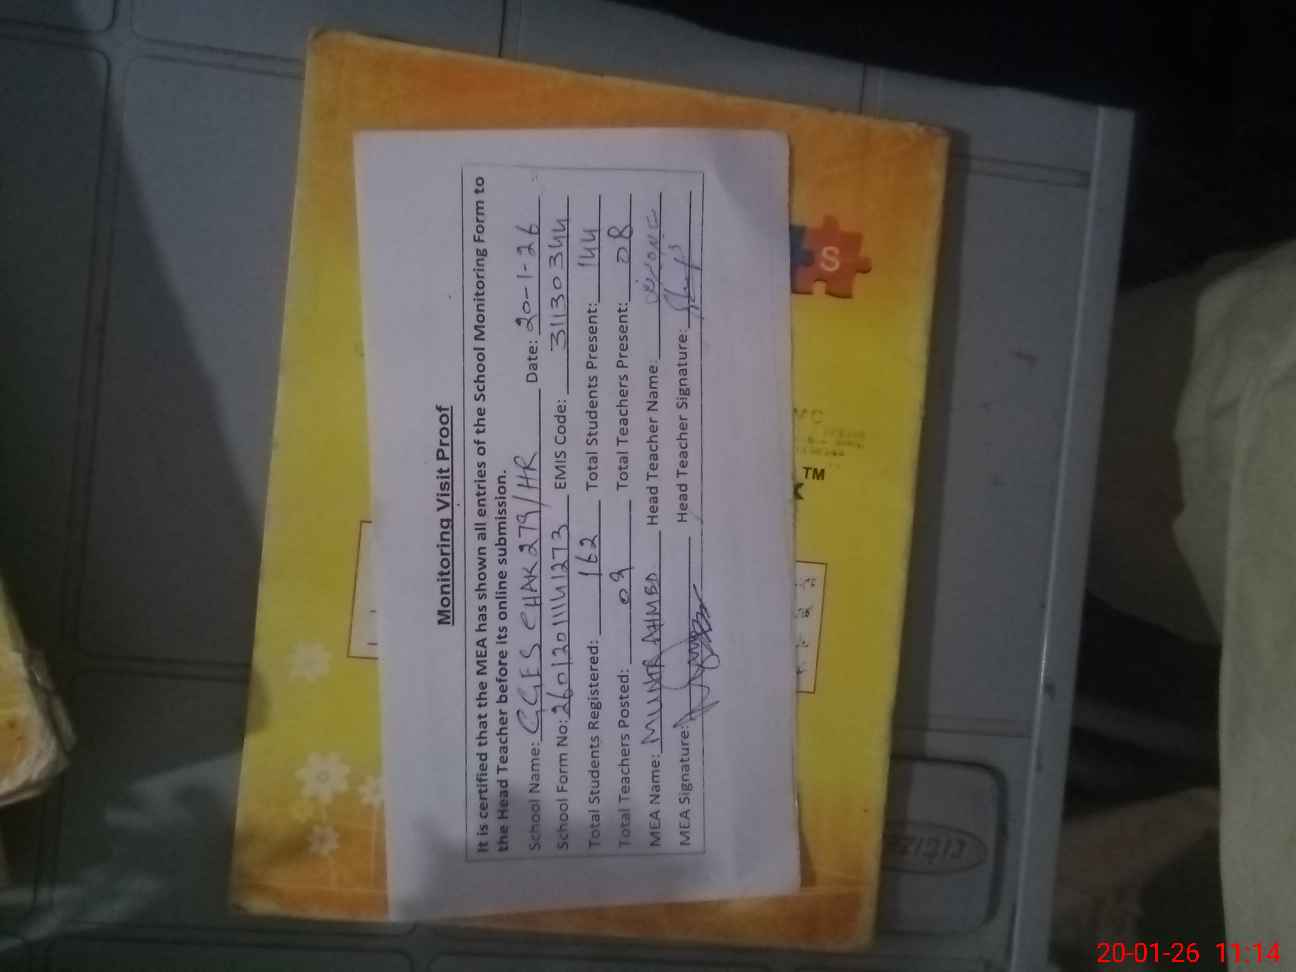 Monitoring Visit Proof
It is certified that the MEA has shown all entries of the School Monitoring Form to
the Head Teacher before its online submission.
School Name: GGES CHAK 279/HR Date: 20-1-26
School Form No: 26012011141273 EMIS Code: 31130344
Total Students Registered: 162 Total Students Present: 144
Total Teachers Posted: 09 Total Teachers Present: 08
MEA Name: MUNIR AHMED Head Teacher Name:
MEA Signature: Head Teacher Signature:
S
TM
citizen
20-01-26 11:14